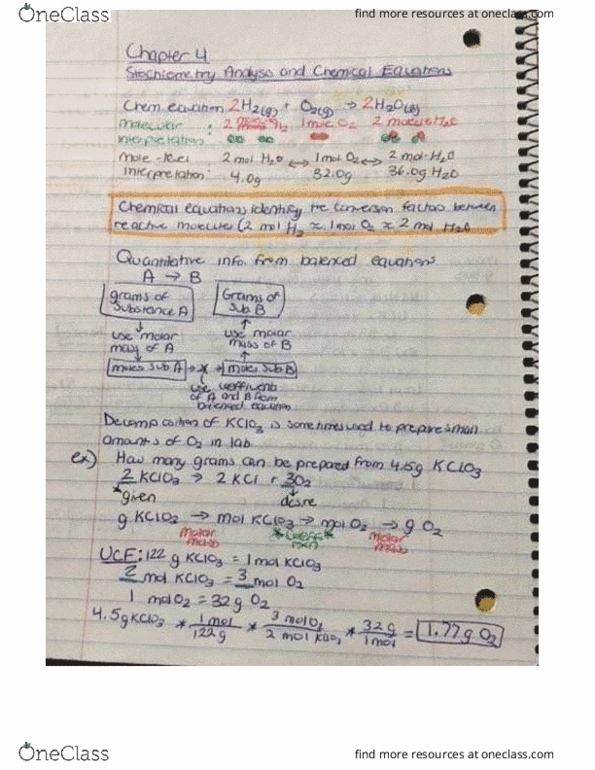 OneClass
find more resources at oneclass.com
Chapter 4
Stochiometry Analysis and Chemical Equations
Chem. equation 2H₂(g) + O₂(g) → 2H₂O(g)
molecular : 2 H₂ 1 molec O₂ 2 molecules H₂O
interpretation:
mole-level 2 mol H₂O ↔ 1 mol O₂ ↔ 2 mol H₂O
interpretation: 4.0g 32.0g 36.0g H₂O
Chemical equations identify the conversion factors between
reactive molecules (2 mol H₂ ≈ 1 mol O₂ ≈ 2 mol H₂O
Quantitative info. from balenced equations
A → B
grams of Grams of
Substance A Sub. B
use molar use molar
mass of A mass of B
moles sub A → * → moles sub B
use coefficients
of A and B from
balenced equation
Decomposition of KClO₃ is sometimes used to prepare small
amounts of O₂ in lab.
ex) How many grams can be prepared from 4.5g KClO₃
2 KClO₃ → 2 KCl + 3O₂
given desire
g KClO₂ → mol KClO₃ → mol O₂ → g O₂
molar mass * coeff rxn molar mass
UCF: 122 g KClO₃ = 1 mol KClO₃
2 mol KClO₃ = 3 mol O₂
1 mol O₂ = 32g O₂
4.5g KClO₃ * 1 mol/122g * 3 mol O₂/2 mol KClO₃ * 32g/1 mol = 1.77g O₂
OneClass
find more resources at oneclass.com